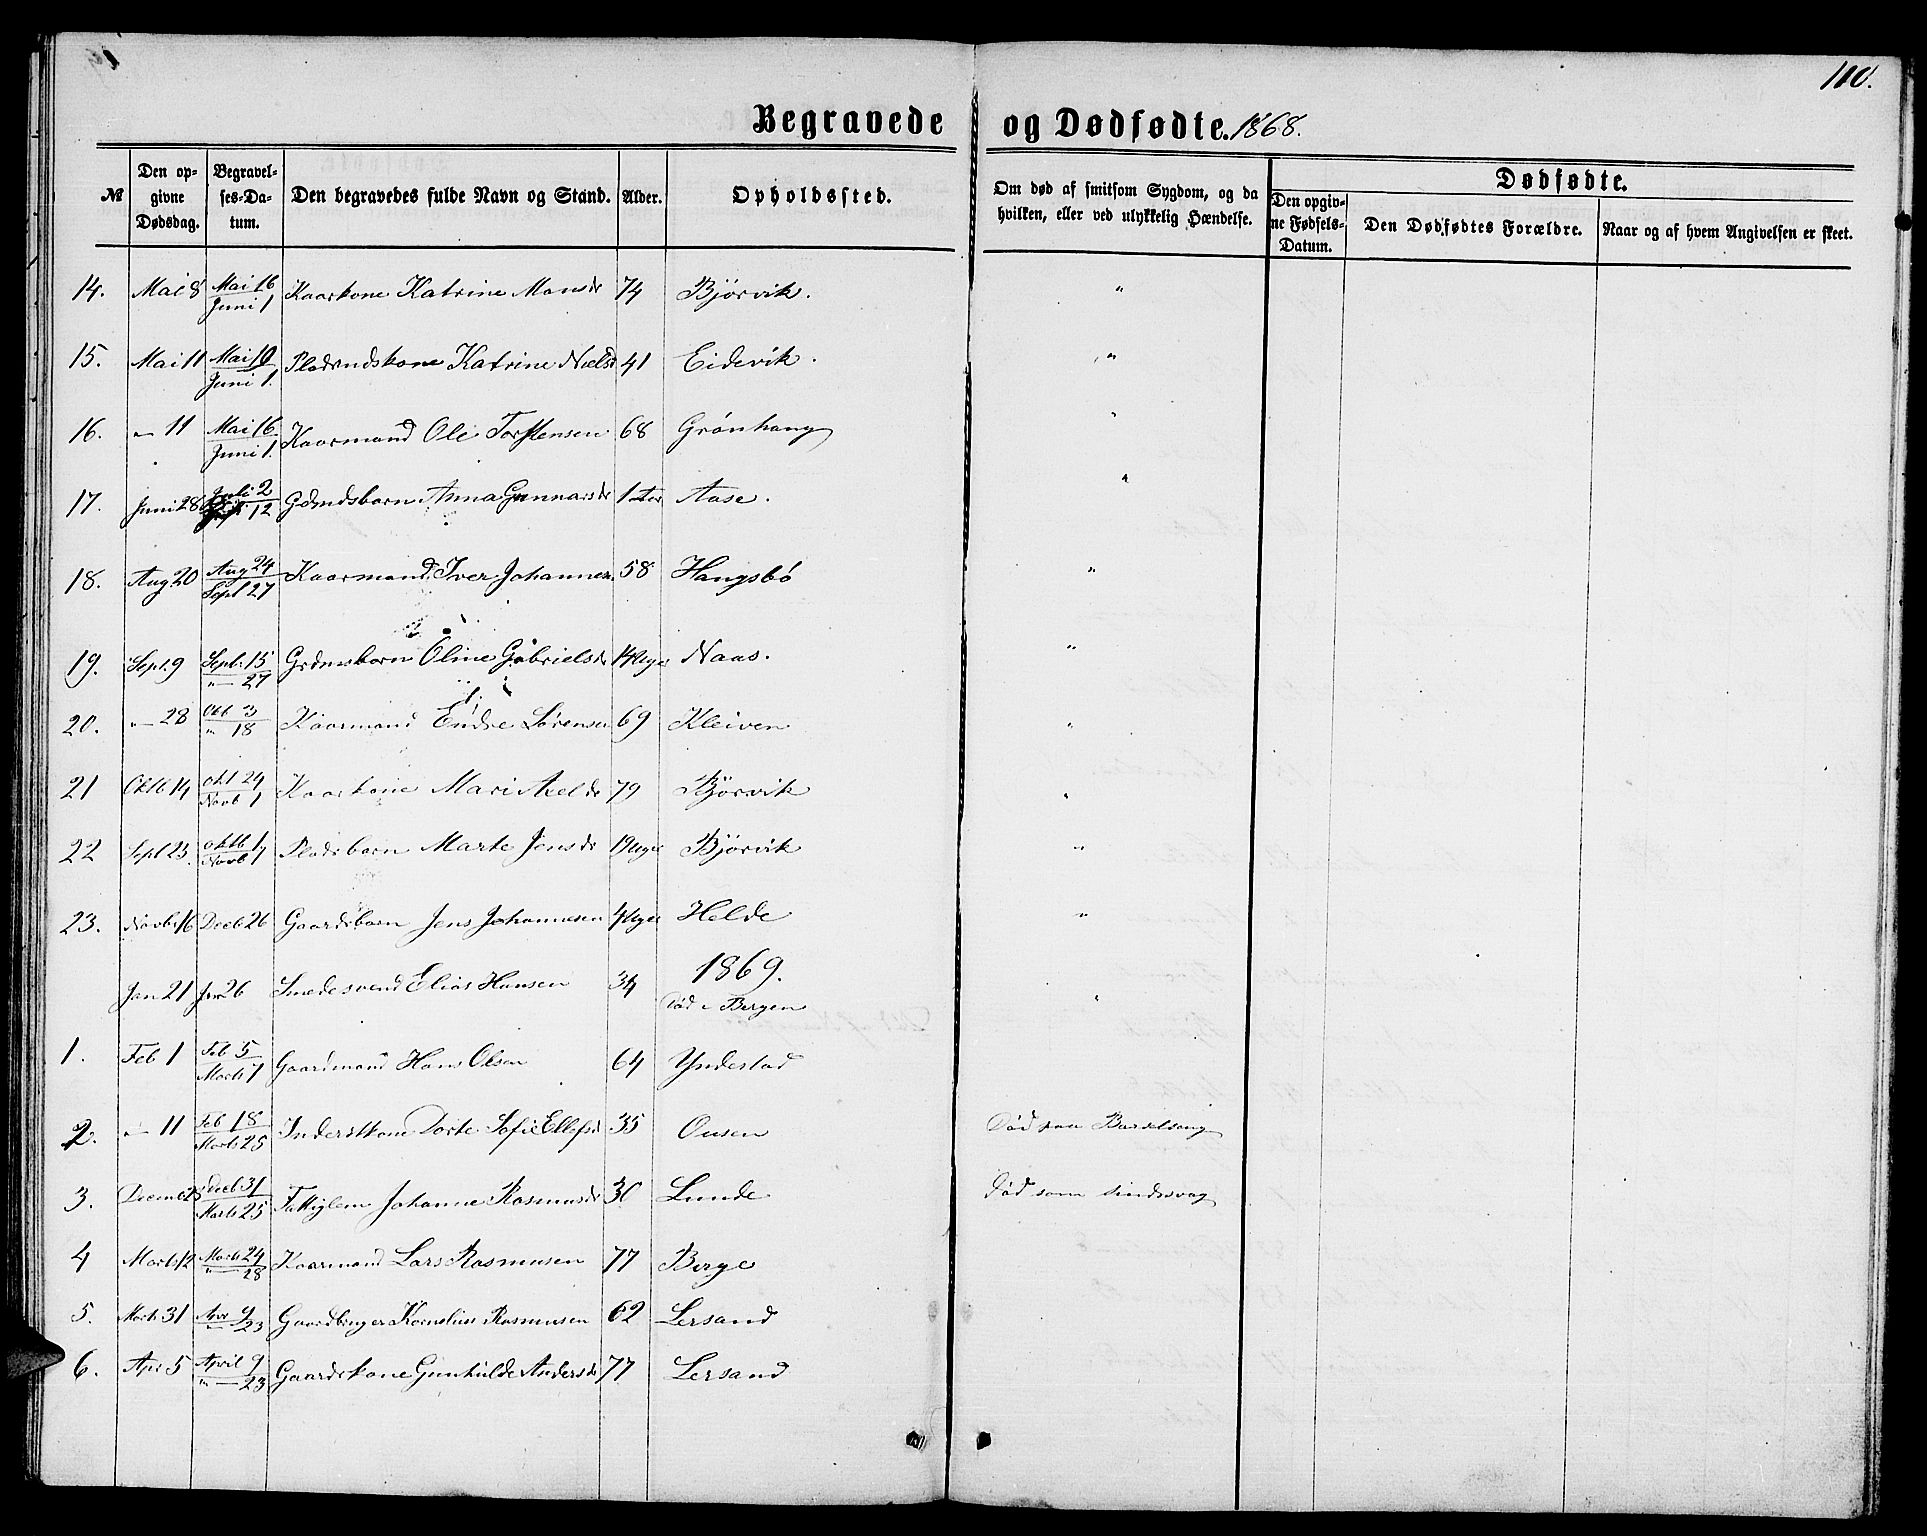 110.
Begravede og Dødfødte. 1868.
№ Den opgivne Dødsdag. Begravelses-Datum. Den begravedes fulde Navn og Stand. Alder. Opholdssted. Om død af smitsom Sygdom, og da hvilken, eller ved ulykkelig Hændelse. Dødfødte. Den opgivne Fødsels-Datum. Den Dødfødtes Forældre. Naar og af hvem Angivelsen er skeet.
14. Mai 8 Mai 16 Juni 1 Kaarkone Katrine Monsdr 74 Bjørvik. "
15. Mai 11 Juni 1. Katrine Nielsd 41 Eidevik. "
16. " 11 Mai 16 Juni 1. Kaarmand Ole Torstensen 68 Grönhaug "
17. Juni 28 Juli 2 12 Gdmdsbarn Anna Gunnarsdr 1 Aase. "
18. Aug 20 Aug 24 Sept 27 Kaarmand Iver Johannesen 58 Haugsbö "
19. Sept. 9 Septb 15 " 27 Oline Gabrielsdr 14 Uger Naas. "
20. " 28 Okt 3 " 18 Kaarmand Endre Sörensen 69 Kleiven "
21 Oktb 14 Okt 24 Novb 1 Kaarkone Mari Axeldr 79 Björvik "
22 Sept 23. Oktb 17 Novb 1 Pladsbarn Marte Jensdr Björvik "
23. Novbr 16 Decb 26 Gaardsbarn Jens Johannesen 4 Uger Helde "
1869.
Jan 21 Jan 26 Smedesvend Elias Hansen 34 Død i Bergen "
1. Feb 1 Feb 5 Marts 7 Gaardmand Hans Olsen 64 Yndestad
2. " 11 Feb 18 Marts 25 Inderstkone Dorte Sofie Ellefsd 35 Ousen Død paa Barselseng
3. Decemb 25 Decb 31 Marts 25 Fattiglem Johanne Rasmusdr 30 Lunde Død som sindssvag
4 Marts 12 Marts 24 " 28 Kaarmand Lars Rasmusen 77 Berge
5. Marts 31 Apr 9 " 23 Gaardbruger Kornelius Rasmusen 62 Lersand
6. Apr 5 April 9 " 23 Gaardskone Gunhilde Andersdr 77 Lersand